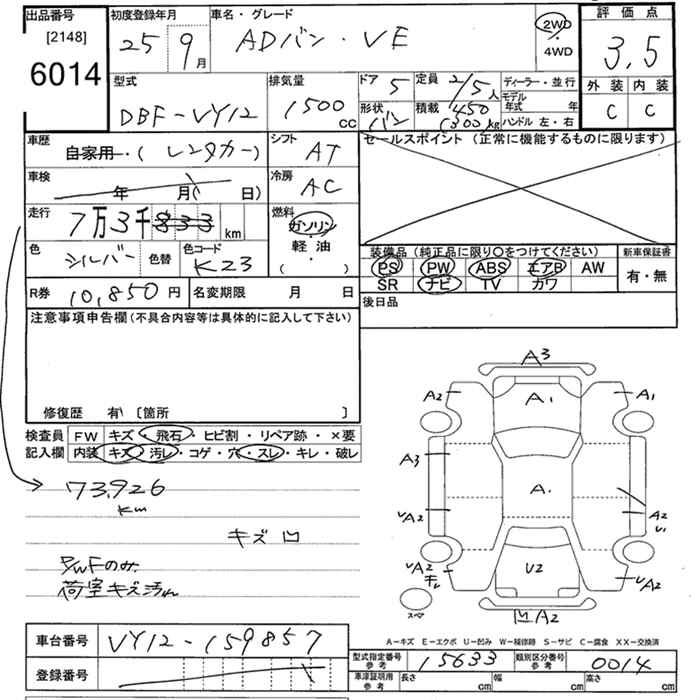 出品番号
[2148]
6014
初度登録年月
25 9月
車名・グレード
ADバン・VE
2WD
4WD
評価点
3,5
外装 内装
C C
型式
DBF-VY12
排気量
1500 cc
ドア 5
定員 2/5人
形状 バン
積載 450 (300)kg
ディーラー・並行
モデル年式 年
ハンドル 左・右
車歴
自家用・(レンタカー)
シフト
AT
セールスポイント (正常に機能するものに限ります)
車検
年 月( 日)
冷房
AC
走行
7万3千833 km
燃料
ガソリン
軽油
( )
色
シルバー
色替
色コード
K23
装備品 (純正品に限り〇をつけてください)
PS PW ABS エアB AW
SR ナビ TV カワ
新車保証書
有・無
R券 10,850円
名変期限 月 日
後日品
注意事項申告欄(不具合内容等は具体的に記入して下さい)
修復歴 有\ 〔箇所 〕
検査員記入欄
FW キズ・飛石・ヒビ割・リペア跡・×要
内装 キズ・汚レ・コゲ・穴・スレ・キレ・破レ
73,926
km
キズ 凹
P/WFのみ
荷室キズ汚れ
A3
A2
A1
A1
A3
A1
UA2
A2
U1
UA2
U2
UA2
スペア
凹A2
A−キズ E−エクボ U−凹み W−補修跡 S−サビ C−腐食 XX−交換済
車台番号
VY12-159857
登録番号
型式指定番号
参考
15633
類別区分番号
参考
0014
車庫証明用
参考
長さ cm
幅 cm
高さ cm